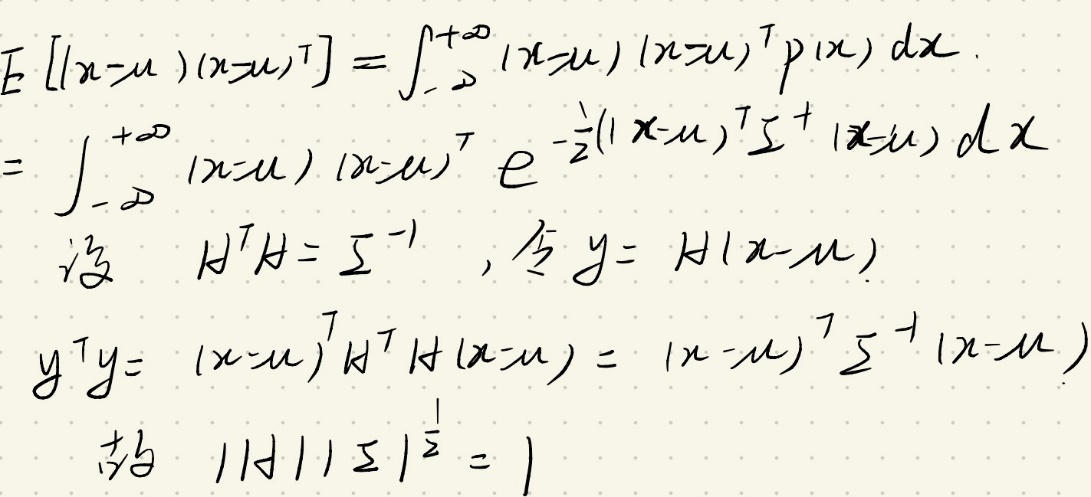 E[(x-μ)(x-μ)ᵀ] = ∫₋∞⁺∞ (x-μ)(x-μ)ᵀ p(x) dx.
= ∫₋∞⁺∞ (x-μ)(x-μ)ᵀ e^{-½((x-μ)ᵀ Σ⁻¹ (x-μ)} dx
设 HᵀH = Σ⁻¹ , 令 y = H(x-μ)
yᵀy = (x-μ)ᵀHᵀH(x-μ) = (x-μ)ᵀ Σ⁻¹ (x-μ)
故 ||H||Σ|^{½} = 1